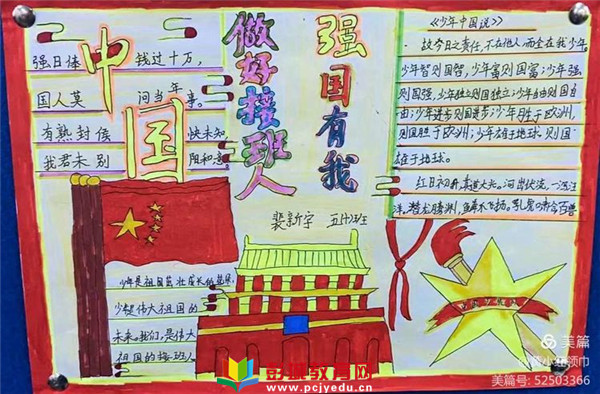 中国
强日体
钱过十万，
国人莫
问当年事。
有熟封侯
快未知
我君未别
阳和意
做好接班人
强国有我
裴新宇
《少年中国说》
故今日之责任，不在他人，而全在我少年。
少年智则国智，少年富则国富；少年强
则国强，少年独立则国独立；少年自由则国自
由；少年进步则国进步；少年胜于欧洲，
则国胜于欧洲；少年雄于地球，则国
雄于地球。
红日初升，其道大光。河出伏流，一泻汪
洋。潜龙腾渊，鳞爪飞扬。乳虎啸谷，百兽
少年是祖国茁壮成长的
少是伟大祖国的
未来。我们，是伟大
祖国的接班人
美篇
小红领巾
美篇号：52503366
彭课教育网
www.pcjyedu.cn